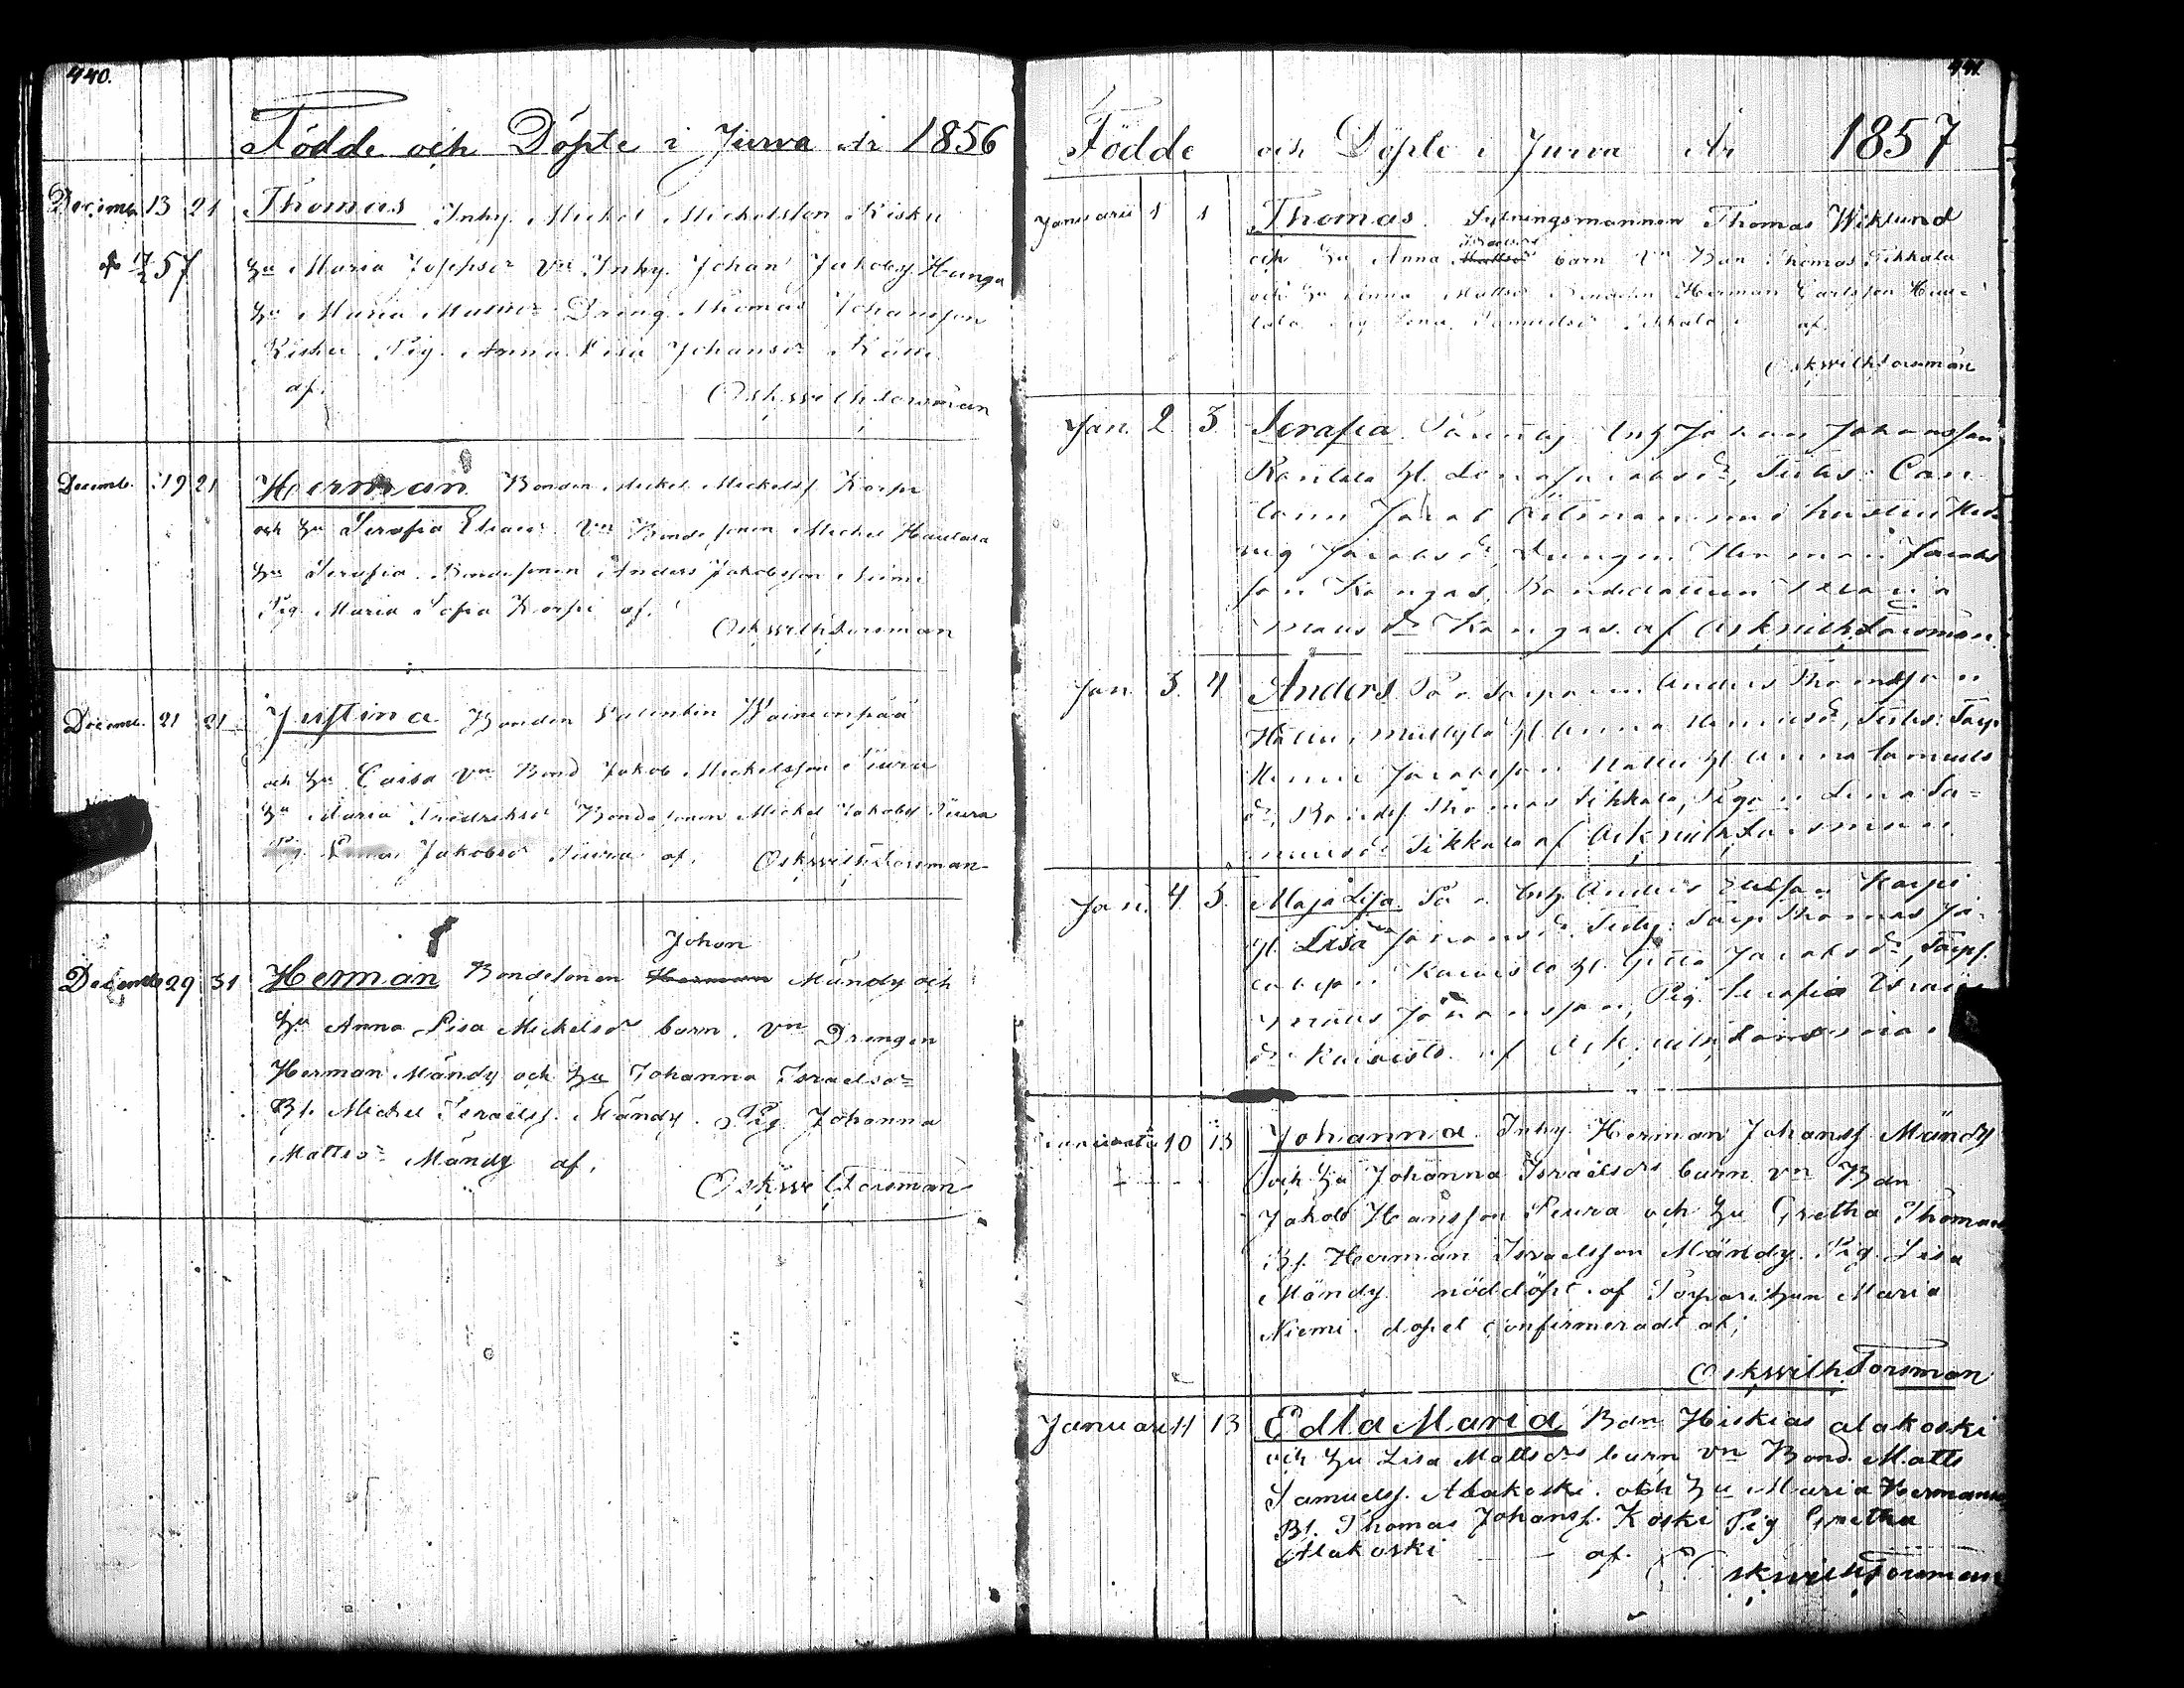 440.
Födde och Döpte i Jurva År 1856
Decemb. 13 21 Thomas Inhy. Michel Michelsson Kisku
57 hu Maria Josephsdr Vn Inhy. Johan Jakobsf Hanga
hu Maria Dräng Thomas Johansson
Kisku Pig. Anna Lisa Johansdr
af.
Osk. Wilh. Forsman
Decemb. 19 21 Herman Bonden Mickel Mickelsf Korpi
och hu Serafia Vn Bondesonen Michel Hautala
hu Serafia Bondesonen Anders Jakobsson Niemi
Pig. Maria Sofia Korpi af.
Osk. Wilh. Forsman
Decemb. 21 21 Justina Bonden Valentin Wainionpää
och hu Caisa Vn Bond Jakob Mickelsson Piura
hu Maria Fredriksdr Bondesonen Mickel Jakobsf Piura
Pig Jakobsdr Piura af. Osk. Wilh. Forsman
Johan
Decemb 29 31 Herman Bondesonen Herman Mändy och
hu Anna Lisa Mickelsdr barn. Vn Drengen
Herman Mändy och hu Johanna Israelsdr
Bs. Michel Israelsf. Mändy. Pig. Johanna
Mattsdr Mändy af.
Osk. Wilh. Forsman
441.
Födde och Döpte i Jurva År 1857
Januarii 1 1 Thomas. Sytningsmannen Thomas Wiklund
och hu Anna Mattsdr barn Vn Bon Thomas Tikkala
och hu Anna Mattsdr Herman Carlsson
Pig Lena Samuelsdr Tikkala af.
Osk. Wilh. Forsman
Jan. 2 3 Serafia Inh Johan Johansson
Rantala h. Lena Jacobsdr, Test:
Jacob hustru Hed-
vig Jacobsdr, Drengen Herman Jacobs
son Kangas, Bondedottren
Kangas. af Osk. Wilh. Forsman
Jan. 3. 4 Anders Torparen Anders Thomasson
Hallu, Myllylä h. Anna Henricsdr, Test: Torp
Henric Jacobsson Hallu h. Anna Samuels
dr, Bondes. Thomas Tikkala, Pigan Lena Sa=
muelsdr Tikkala af Osk. Wilh. Forsman
Jan. 4. 5. Maja Lisa Inh. Anders Korpi
h. Lisa Johansdr. Test: Torp Thomas Ja-
cobsson Koivisto h. Greta Jacobsdr, Torps.
Johansson, Pig. Serafia Israels
dr Koivisto af Osk. Wilh. Forsman
10 13 Johanna Inhy Herman Johansf Mändy
och hu Johanna Israelsdr barn Vn Bon
Jakob Hansson Peura och hu Gretha Thomasdr
Bs. Herman Israelsson Mändy. Pig. Lisa
Mändy nöddöpt af Torparehun Maria
Niemi. dopet confirmeradt af;
Osk. Wilh. Forsman
Januari 11 13 Edla Maria Bon Hiskias alakoski
och hu Lisa Mattsdr barn Vn Bond. Matts
Samuelsf. Alakoski och hu Maria Hermansdr
Bs. Thomas Johansf. Koski Pig Gretha
Alakoski af. Osk. Wilh. Forsman